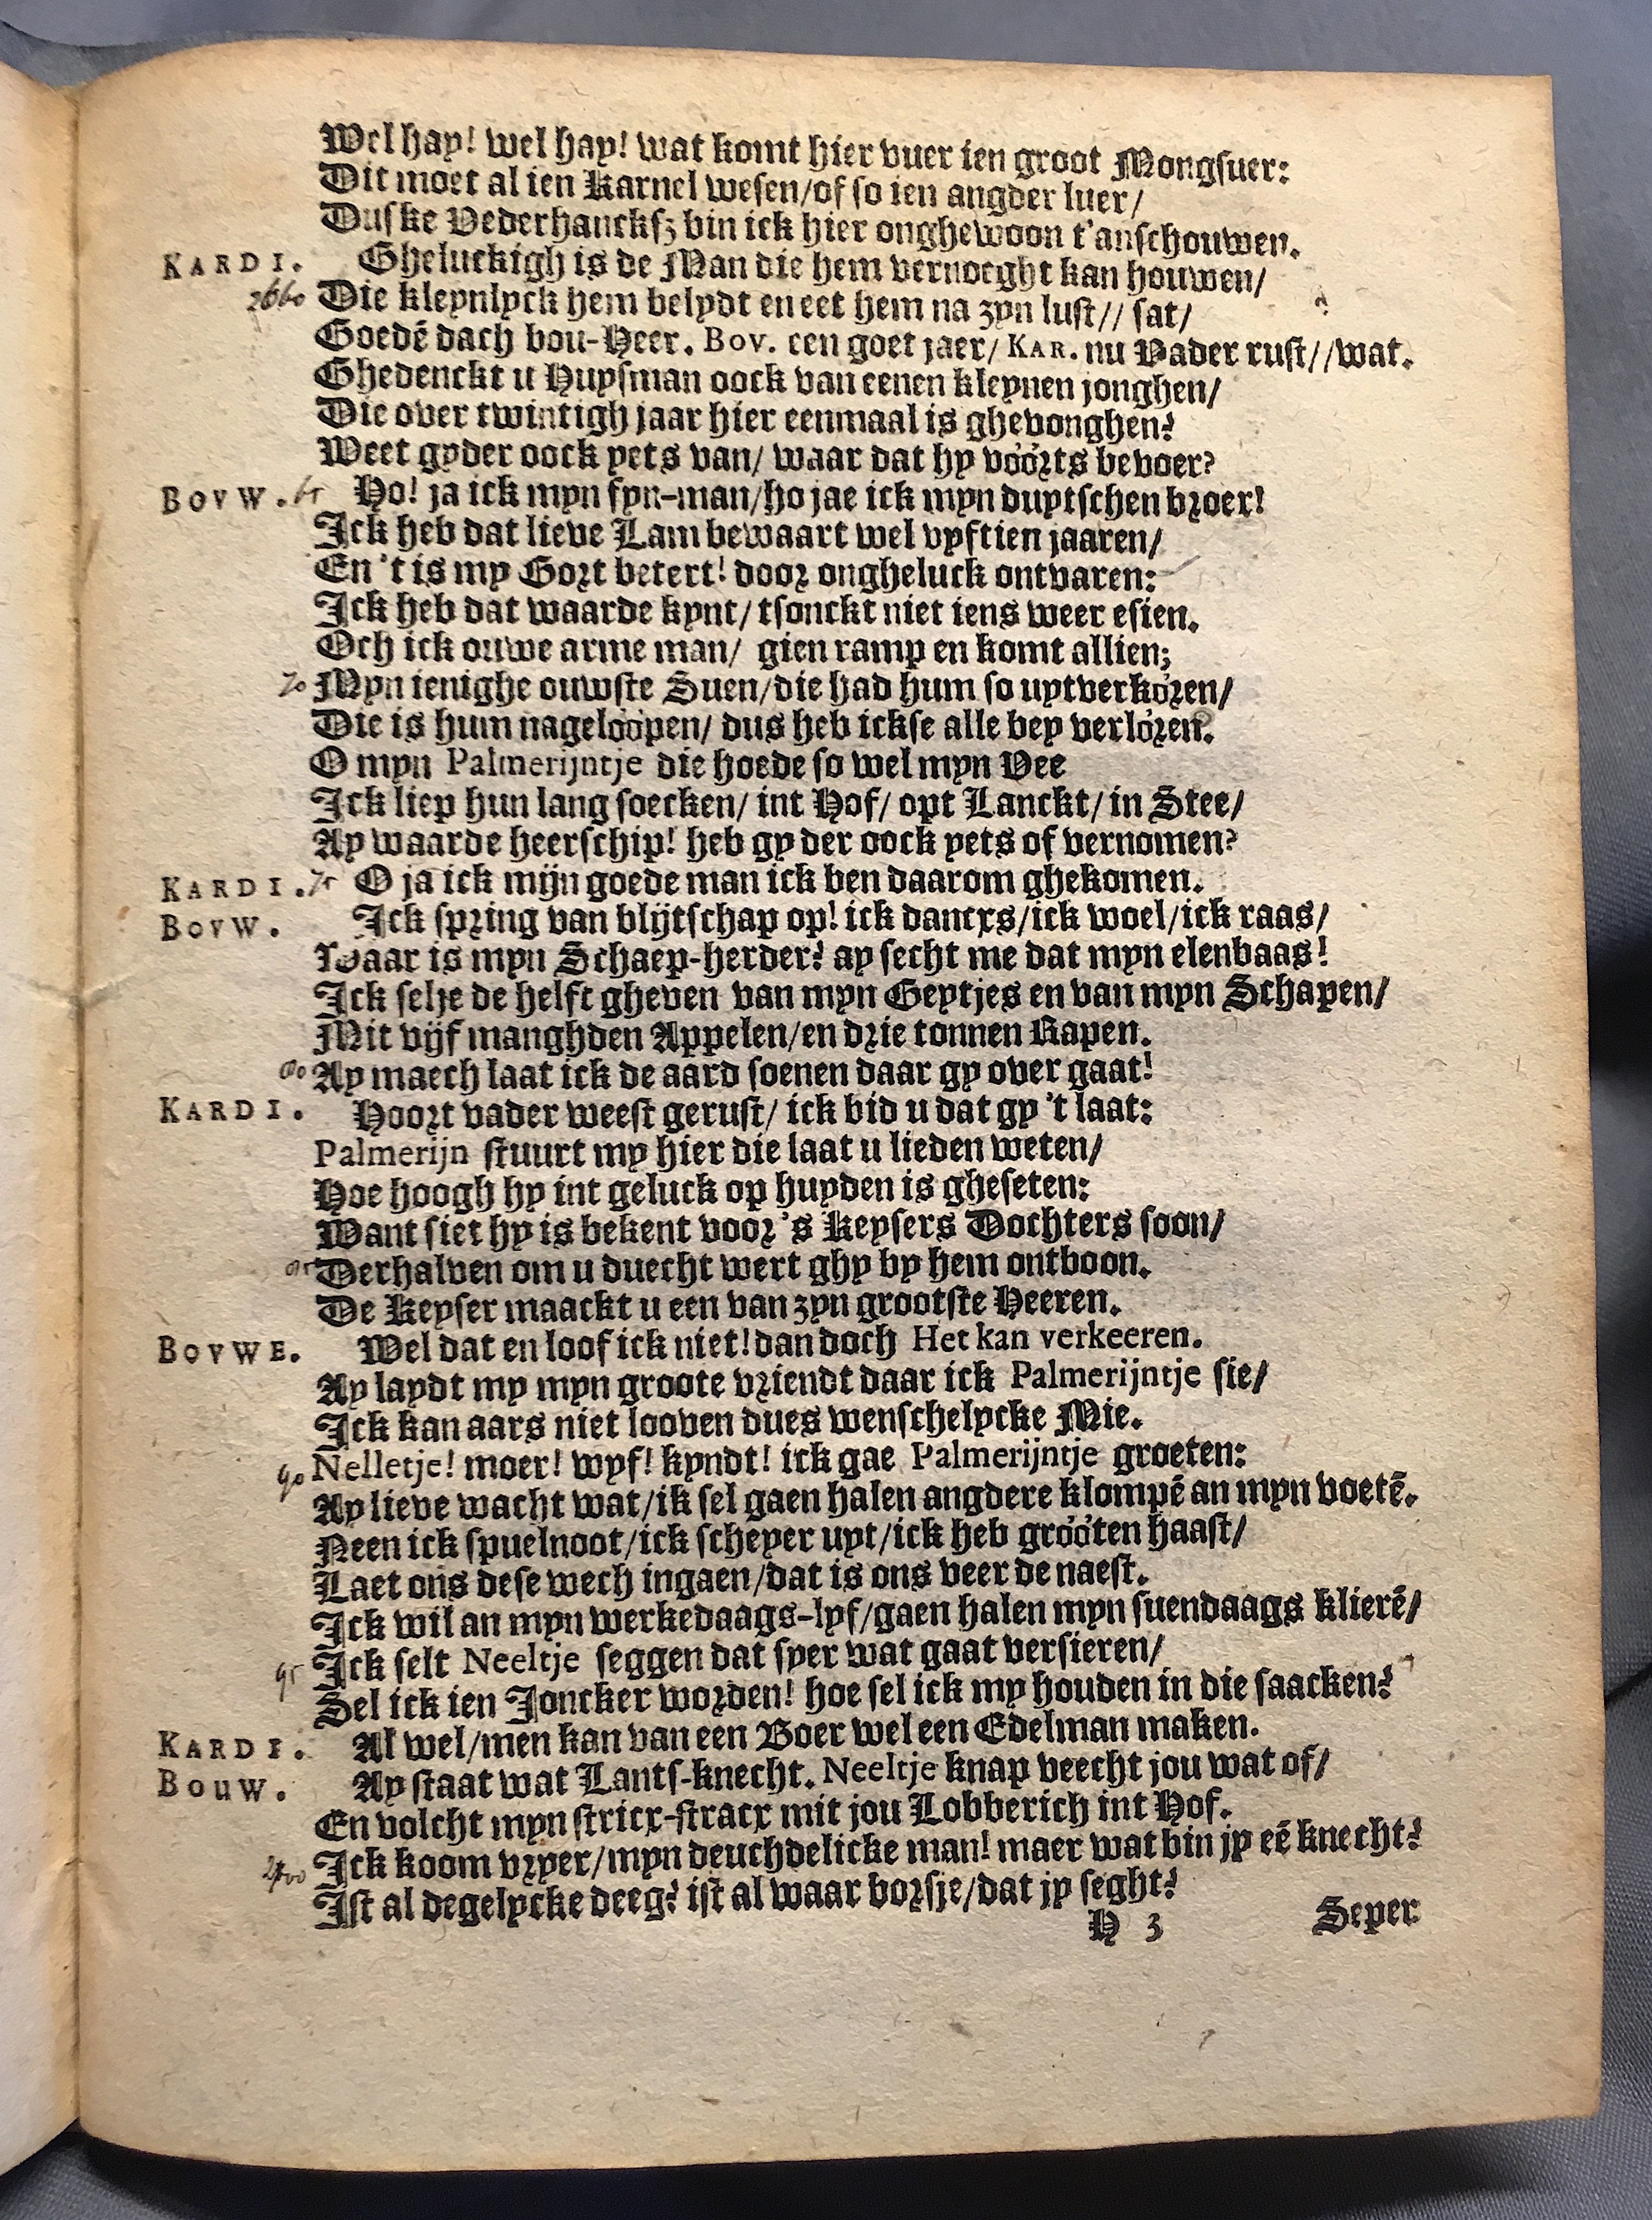 Wel hay! wel hay! wat komt hier vuer ien groot Mongsuer:
Dit moet al ien Karnel wesen/of so ien angder luer/
Duske Vederhancksz bin ick hier onghewoon t'anschouwen.
KARDI. Gheluckigh is de Man die hem vernoeght kan houwen/
2660 Die kleynlyck hem belydt en eet hem na zyn lust// sat/
Goedē dach bou-Heer. Bov. een goet jaer/ KAR. nu Vader rust//wat.
Ghedenckt u Huysman oock van eenen kleynen jonghen/
Die over twintigh jaar hier eenmaal is ghevonghen?
Weet gyder oock yets van/ waar dat hy vóórts bevoer?
BOVW. 65 Ho! ja ick myn fyn-man/ho jae ick myn duytschen broer!
Ick heb dat lieve Lam bewaart wel vyftien jaaren/
En 't is my Gort betert! door ongheluck ontvaren:
Ick heb dat waarde kynt/ tsonckt niet iens weer esien.
Och ick ouwe arme man/ gien ramp en komt allien;
70 Myn ienighe ouwste Suen/die had hum so uytverkóren/
Die is hum nagelóópen/ dus heb ickse alle bey verlóren.
O myn Palmerijntje die hoede so wel myn Vee
Ick liep hun lang soecken/ int Hof/ opt Lanckt/ in Stee/
Ay waarde heerschip! heb gy der oock yets of vernomen?
KARDI. 75 O ja ick mijn goede man ick ben daarom ghekomen.
BOVW. Ick spring van blijtschap op! ick dancxs/ick woel/ick raas/
Waar is myn Schaep-herder? ay secht me dat myn elenbaas!
Ick selje de helft gheven van myn Geytjes en van myn Schapen/
Mit vijf manghden Appelen/en drie tonnen Rapen.
80 Ay maech laat ick de aard soenen daar gy over gaat!
KARDI. Hoort vader weest gerust/ ick bid u dat gy 't laat:
Palmerijn stuurt my hier die laat u lieden weten/
Hoe hoogh hy int geluck op huyden is gheseten:
Want siet hy is bekent voor 's Keysers Dochters soon/
85 Derhalven om u duecht wert ghy by hem ontboon.
De Keyser maackt u een van zyn grootste Heeren.
BOVWE. Wel dat en loof ick niet! dan doch Het kan verkeeren.
Ay laydt my myn groote vriendt daar ick Palmerijntje sie/
Ick kan aars niet looven dues wenschelycke Mie.
90 Nelletje! moer! wyf! kyndt! ick gae Palmerijntje groeten:
Ay lieve wacht wat/ik sel gaen halen angdere klompē an myn voetē.
Neen ick spuelnoot/ick scheyer uyt/ick heb gróóten haast/
Laet ons dese wech ingaen/dat is ons veer de naest.
Ick wil an myn werkedaags-lyf/gaen halen myn suendaags klierē/
95 Ick selt Neeltje seggen dat syer wat gaat versieren/
Sel ick ien Joncker worden! hoe sel ick my houden in die saacken?
KARDI. Al wel/men kan van een Boer wel een Edelman maken.
BOUW. Ay staat wat Lants-knecht. Neeltje knap veecht jou wat of/
En volcht myn stricx-stracx mit jou Lobberich int Hof.
2700 Ick koom vryer/myn deuchdelicke man! maer wat bin jy eē knecht?
Ist al degelycke deeg? ist al waar borsje/dat jy seght?
H 3 Seper